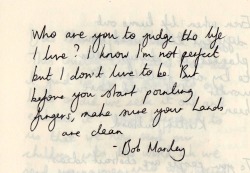 Who are you to judge the life
I live? I know I'm not perfect
but I don't live to be. But
before you start pointing
fingers, make sure your hands
are clean
- Bob Marley